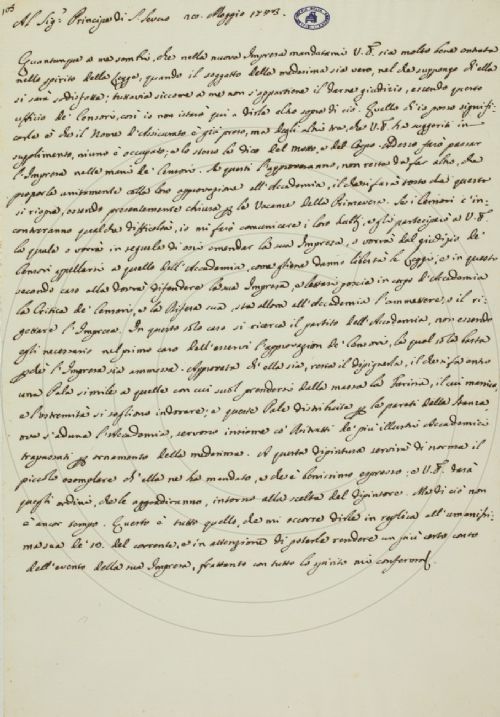 103
Al Sig.r Principe di S. Severo 20. Maggio 1743.
Quantunque a me sembri, che nella nuova Impresa mandatami V. E. sia molto bene entrata
nello spirito della Legge, quando il soggetto della medesima sia vero, nel che suppongo ch'ella
si sarà sodisfatta; tuttavia siccome a me non s'appartiene il darne giudicio, essendo questo
ufficio de' Censori, così io non istarò qui a dirle altro sopra di ciò. Quello ch'io posso signifi-
carle è che il Nome d' è già preso, ma degli altri tre, che V. E. ha suggeriti in
supplimento, niuno è occupato, e lo stesso la dico del Motto, e del Corpo. Adesso farò passar
l'Impresa nelle mani de' Censori. Se questi l'approveranno, non resta da far altro, che
proporla unitamente colla loro approvazione all'Accademia, il che si farà tosto che questa
si riapra, essendo presentemente chiusa per le Vacanze della Primavera. Se i Censori c'in-
contreranno qualche difficoltà, io mi farò comunicare i loro dubbj, e gli parteciperò a V. E.
la quale o vorrà in seguela di essi emendar la sua Impresa, o vorrà dal giudizio de'
Censori appellarsi a quello dell'Accademia, come gliene danno libertà le Leggi, e in questo
secondo caso ella dovrà difendere la sua Impresa, e poscia in corpo d'Accademia
la Critica de' Censori, e la Difesa sua, sta allora all'Accademia l'ammettere, o il ri-
gettare l'Impresa. In questo solo caso si ricerca il partito dell'Accademia, non essendo
egli necessario nel primo caso dell'esservi l'approvazion de' Censori, la qual sola basta
perchè l'Impresa sia ammessa. Approvata ch'ella sia, resta il dipignerla, il che si fa entro
una Pala simile a quelle con cui suol prendersi dalla massa la Farina, il cui manico,
e l'estremità si sogliono indorare; e queste Pale distribuite per le pareti della Stanza
ove s'aduna l'Accademia, servono insieme co' Ritratti de' più illustri Accademici
trapassati per ornamento della medesima. A questa dipintura servirà di norma il
piccolo esemplare ch'ella ne ha mandato, e ch'è benissimo espresso; e V. E. darà
quegli ordini, che le aggradiranno, intorno alla scelta del dipintore. Ma di ciò non
è ancor tempo. Questo è tutto quello, che mi occorre dirle in replica all'umanissi-
ma sua de' 10. del corrente, e in attenzione di poterle rendere un più certo conto
dell'evento della sua Impresa, frattanto con tutto lo spirito mi confermo